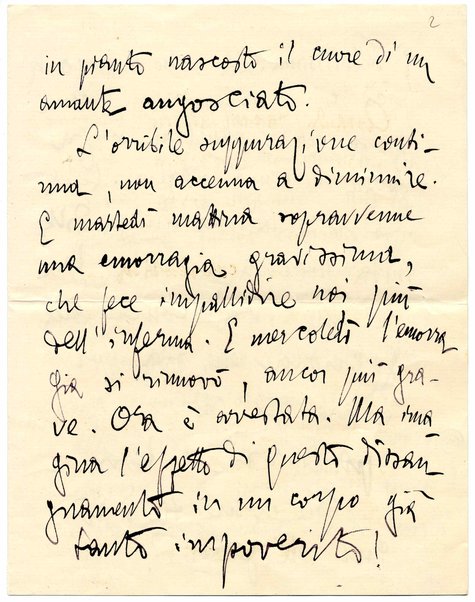 2
in pianto nascosto il cuore di un
amante angosciato.
L'orribile suppurazione conti-
nua, non accenna a diminuire.
E martedì mattina sopravvenne
una emorragia gravissima,
che fece impallidire noi più
dell'inferma. E mercoledì l'emorra
gia si rinnovò, ancor più gra-
ve. Ora è arrestata. Ma ima
gina l'effetto di questo dissan
guamento in un corpo già
tanto impoverito!